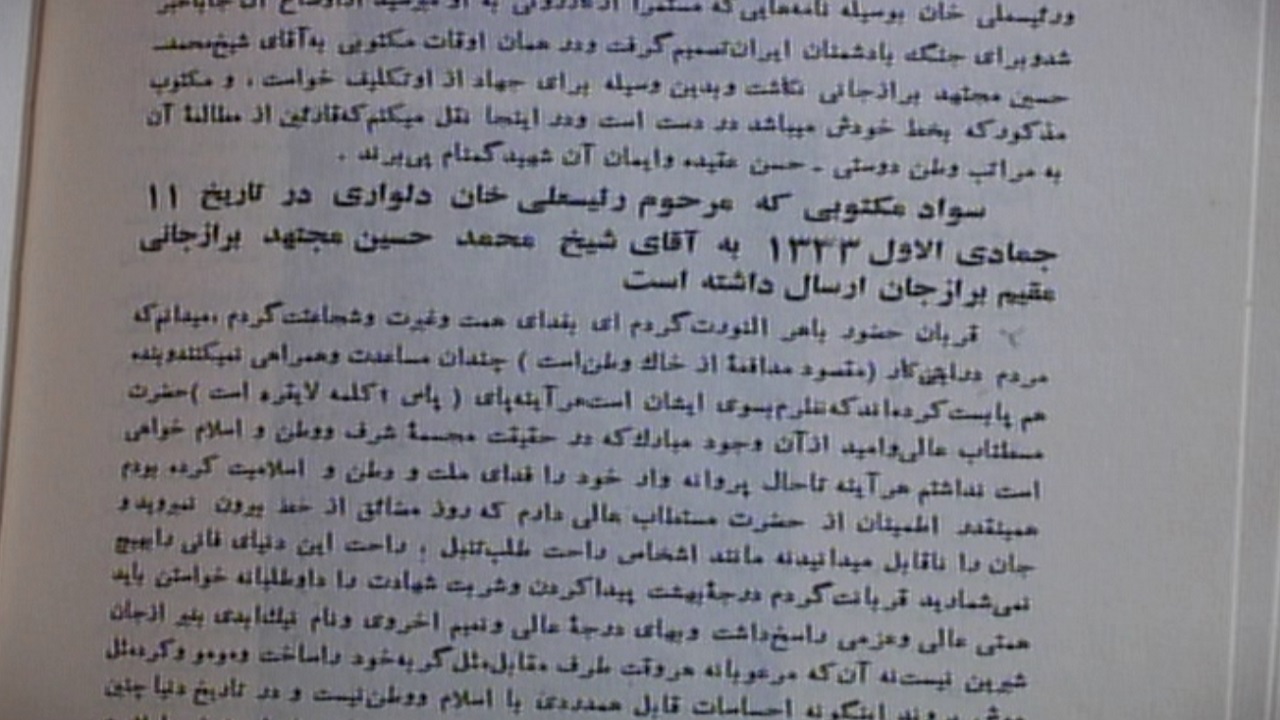 ورئیسعلی خان بوسیله نامه‌هایی که مستمراً از کازرونی به او میرسید
شدوبرای جنگ بادشمنان ایران‌تصمیم‌گرفت ودر همان اوقات مکتوبی به‌آقای شیخ‌محمد
حسین مجتهد برازجانی نگاشت وبدین وسیله برای جهاد از اوتکلیف خواست . و مکتوب
مذکورکه بخط خودش میباشد در دست است ودر اینجا نقل میکنم‌که‌قارئین از مطالعهٔ آن
به مراتب وطن دوستی - حسن عقیده وایمان آن شهیدگمنام پی‌برند .
سواد مکتوبی که مرحوم رئیسعلی خان دلواری در تاریخ ۱۱
جمادی الاول ۱۳۳۳ به آقای شیخ محمد حسین مجتهد برازجانی
مقیم برازجان ارسال داشته است
قربان حضور باهر النورت‌گردم ای بفدای همت وغیرت وشجاعتت‌گردم ،میدانم‌که
مردم دراین‌کار (مقصود مدافعهٔ از خاك وطن‌است ) چندان مساعدت وهمراهی نمیکنندوبنده
هم پابست‌کرده‌اندکه‌نظرم‌بسوی ایشان است‌هرآینه‌پای ( پاس ۲کلمه لایقره است )حضرت
مستطاب عالی‌وامید ازآن وجود مبارك‌که در حقیقت مجسمهٔ شرف ووطن و اسلام خواهی
است نداشتم هرآینه تاحال پروانه وار خود را فدای ملت و وطن و اسلامیت کرده بودم
همینقدر اطمینان از حضرت مستطاب عالی دارم که روز مضائق از خط بیرون نمیروید و
جان را ناقابل میدانیدنه مانند اشخاص راحت طلب‌تنبل ؛ راحت این دنیای فانی رابهیچ
نمی‌شمارید قربانت‌گردم درجهٔ‌بهشت پیداکردن وشربت شهادت را داوطلبانه خواستن باید
همتی عالی وعزمی راسخ‌داشت وبهای درجهٔ عالی ونعیم اخروی ونام نیك‌ابدی بغیر ازجان
شیرین نیست‌نه آن‌که مرعوبانه هروقت طرف مقابل‌مثل‌گربه‌خود راساخت ومومو وکردمثل
موش بروند اینگونه احساسات قابل همدردی با اسلام ووطن‌نیست و در تاریخ دنیا چنین